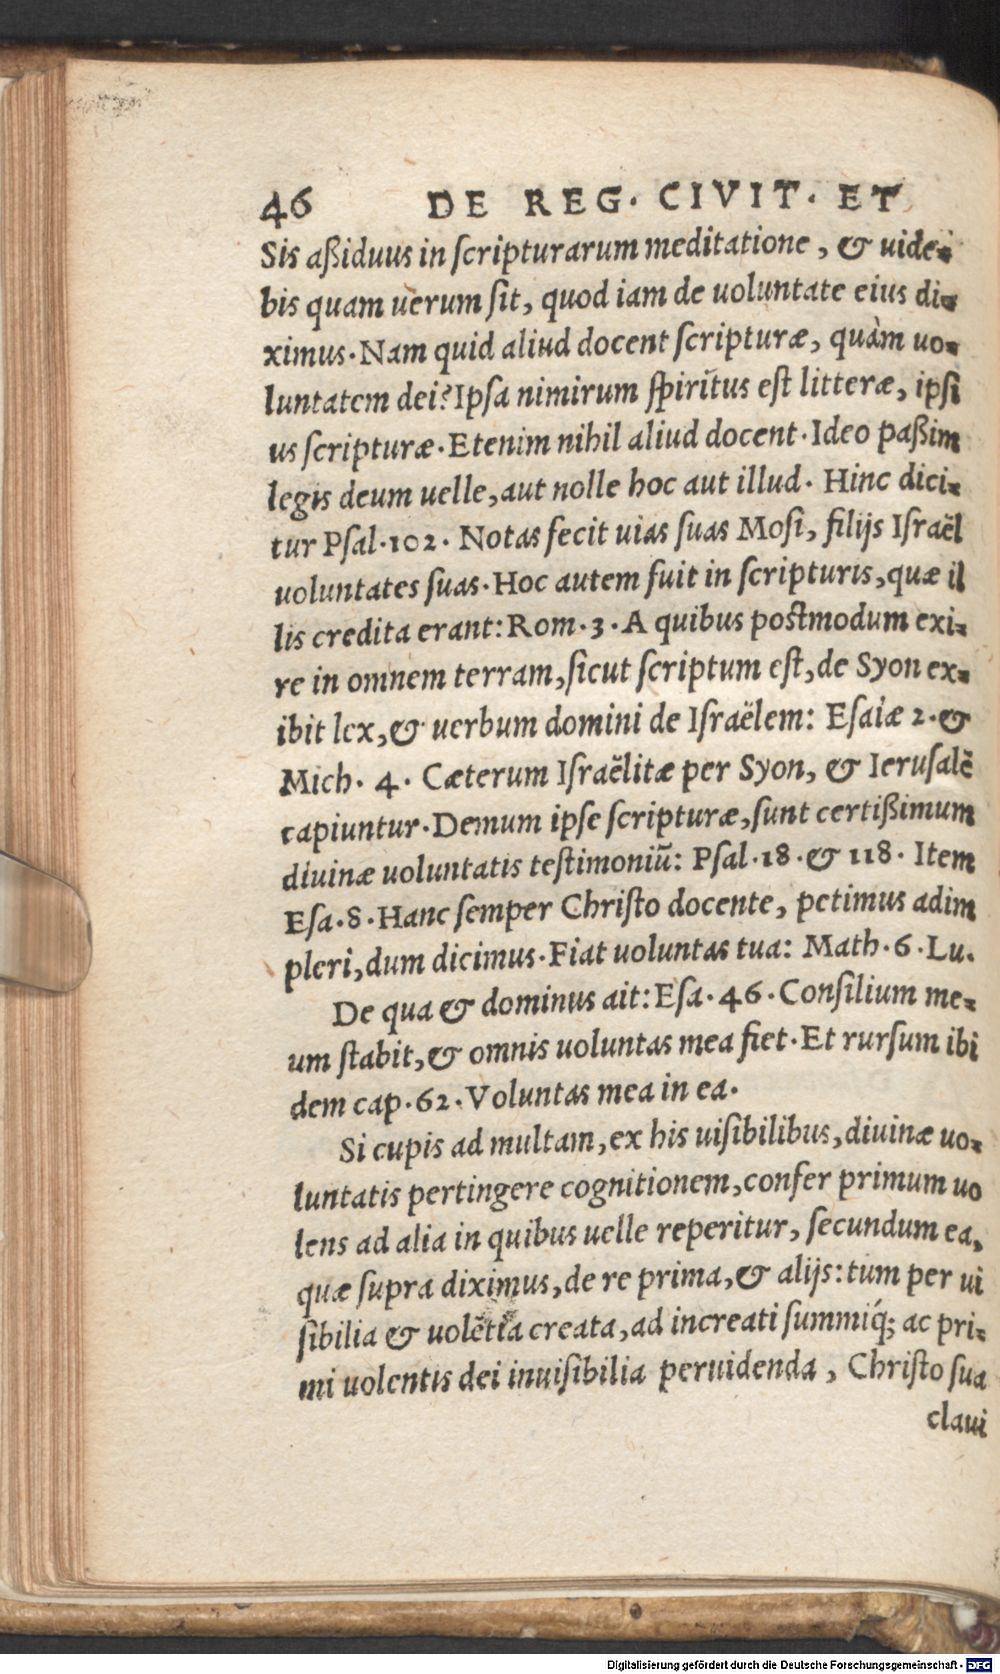 46 DE REG. CIVIT. ET
Sis aßiduus in ſcripturarum meditatione, & uide-
bis quam uèrum ſit, quod iam de uoluntate eius di-
ximus. Nam quid aliud docent ſcripturæ, quàm uo-
luntatem dei? Ipſa nimirum ſpiritus eſt litteræ, ipſi
us ſcripturæ. Etenim nihil aliud docent. Ideo paßim
legis deum uelle, aut nolle hoc aut illud. Hinc dici-
tur Pſal. 102. Notas fecit uias ſuas Moſi, filijs Iſraël
uoluntates ſuas. Hoc autem fuit in ſcripturis, quæ il
lis credita erant: Rom. 3. A quibus poſtmodum exi-
re in omnem terram, ſicut ſcriptum eſt, de Syon ex-
ibit lex, & uerbum domini de Iſraëlem: Eſaiæ 2. &
Mich. 4. Cæterum Iſraëlitæ per Syon, & Ieruſalē
capiuntur. Demum ipſe ſcripturæ, ſunt certißimum
diuinæ uoluntatis teſtimoniū: Pſal. 18. & 118. Item
Eſa. 8. Hanc ſemper Chriſto docente, petimus adim
pleri, dum dicimus. Fiat uoluntas tua: Math. 6. Lu.
De qua & dominus ait: Eſa. 46. Conſilium me-
um ſtabit, & omnis uoluntas mea fiet. Et rurſum ibi
dem cap. 62. Voluntas mea in ea.
Si cupis ad multam, ex his uiſibilibus, diuinæ uo-
luntatis pertingere cognitionem, confer primum uo
lens ad alia in quibus uelle reperitur, ſecundum ea,
quæ ſupra diximus, de re prima, & alijs: tum per ui
ſibilia & uolētia creata, ad increati ſummiq́; ac pri-
mi uolentis dei inuiſibilia peruidenda, Chriſto ſua
claui
Digitalisierung gefördert durch die Deutsche Forschungsgemeinschaft - DFG